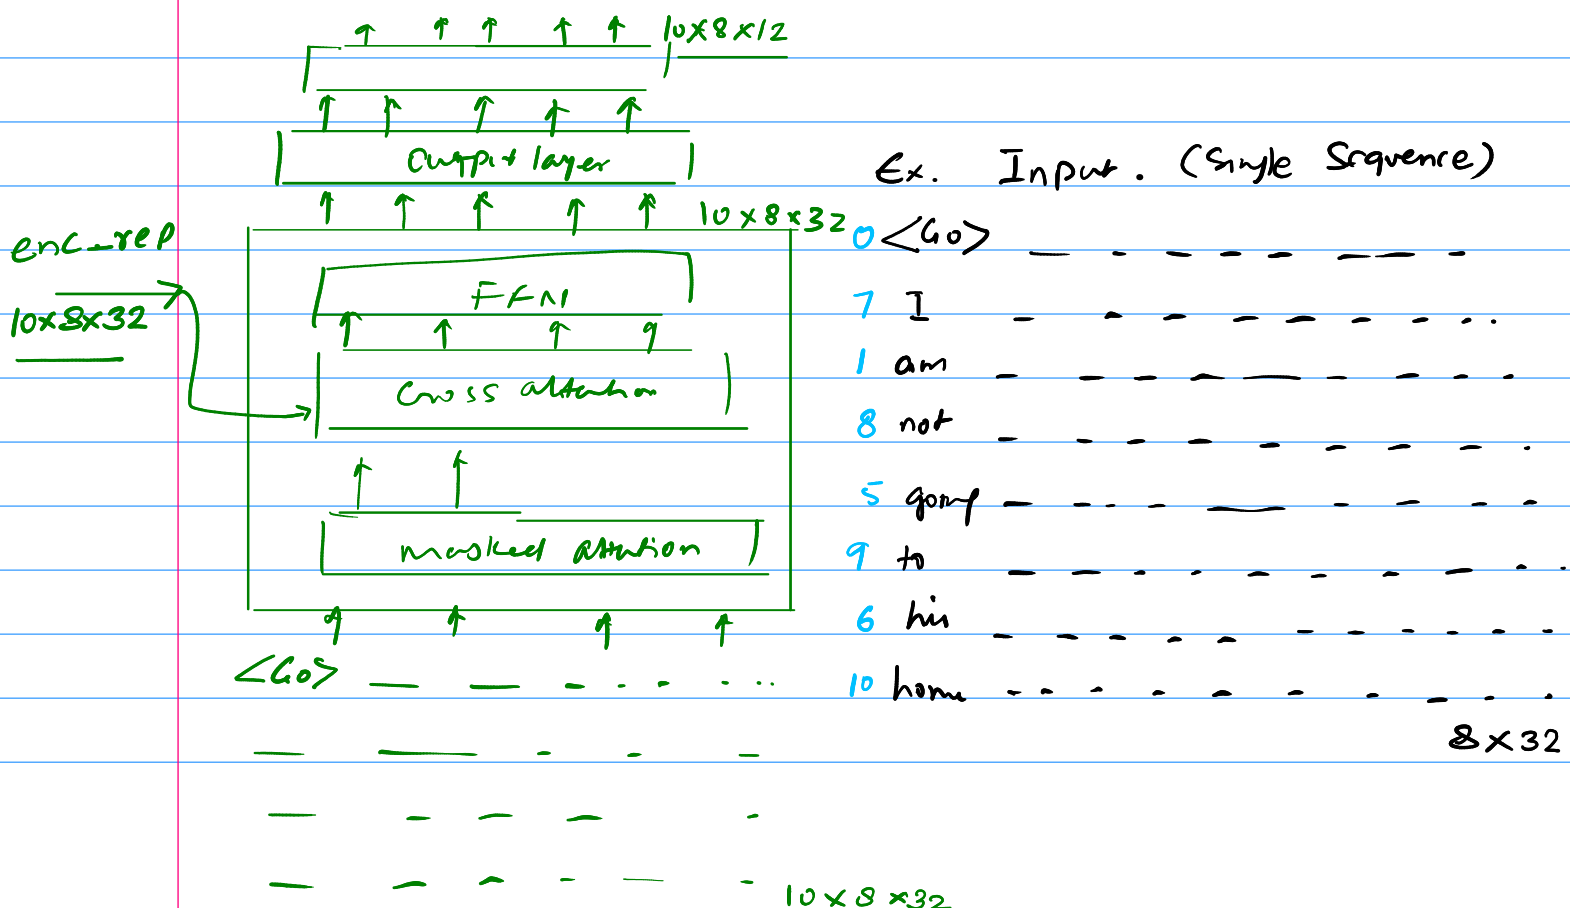 10x8x12
output layer
10x8x32
enc_rep
10x8x32
FFN
Cross attention
masked attention
<Go>
10x8x32
Ex. Input. (Single Sequence)
0 <Go>
7 I
1 am
8 not
5 going
9 to
6 his
10 home
8x32